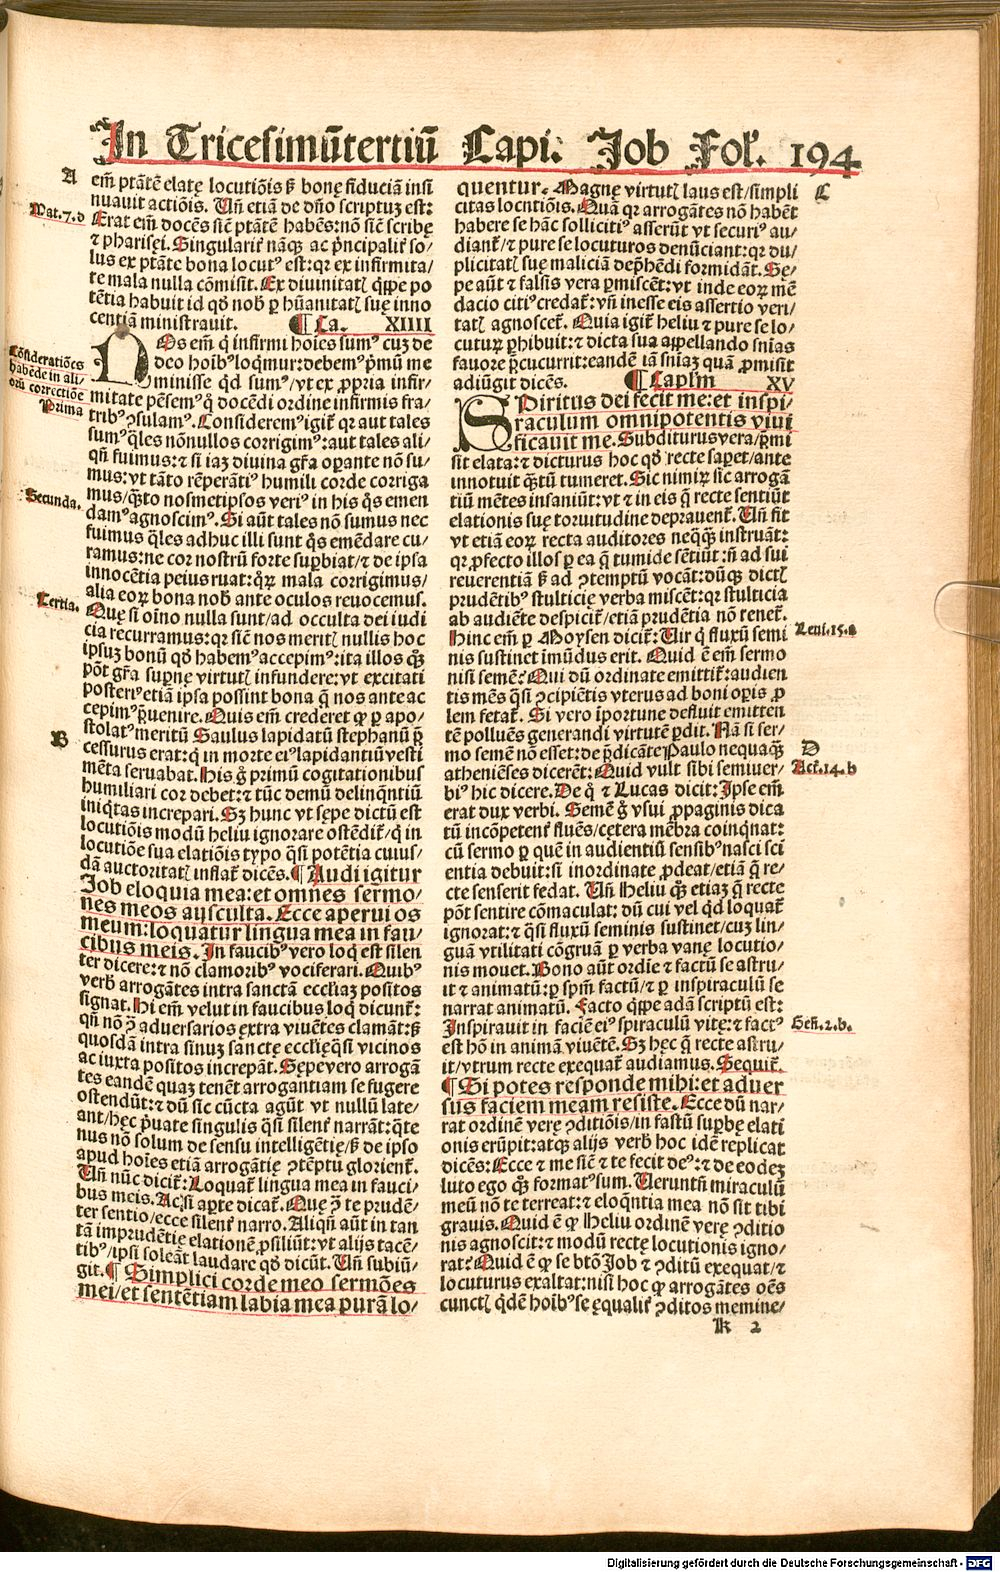 In Tricesimūtertiū Capi. Job Fol. 194
A
em̄ ptātē elatę locutiōis ß bonę fiduciā insi
nuavit actiōis. Vn̄ etiā de dn̄o scriptuʒ est:
Mat.7.d
Erat em̄ docēs sicē ptātē habēs: nō sicē scribę
⁊ pharisęi. Singularit̃ nāqꝫ ac p̄ncipalit̃ so/
lus ex ptāte bona locutꝰ est: qꝛ ex infirmita/
te mala nulla cōmisit. Ex diuinitatꝭ qͥppe po
tētia habuit id qð nob̄ ꝑ hūanitatꝭ suę inno
centiā ministravit. ¶ Ca. XIIII
NOs em̄ qͥ infirmi hoīes sumꝰ cuʒ de
deo hoībꝰ loqͥmur: debemꝰ pͥmū me
Cōsideratiōes
habēde in ali/
orū correctiōe
Prima
minisse qͥd sumꝰ/ vt ex ꝓpria infir/
mitate pēsemꝰ qͦ docēdi ordine infirmis fra/
tribꝰ ꝯsulamꝰ. Consideremꝰ igit̃ qꝛ aut tales
sumꝰ qͣles nōnullos corrigimꝰ: aut tales ali/
qn̄ fuimus: ⁊ si iaʒ divina gr̄a oꝑante nō su/
mus: vt tāto tēꝑātiꝰ humili corde corriga
Secunda.
mus/ qͣꝫto nosmetipsos veriꝰ in his qͦs emen
damꝰ agnoscimꝰ. Si aūt tales nō sumus nec
fuimus qͣles adhuc illi sunt qͦs emēdare cu/
ramus: ne cor nostrū forte suꝑbiat/ ⁊ de ipsa
innocētia peius ruat: qͦꝝ mala corrigimus/
alia eoꝝ bona nob̄ ante oculos revocemus.
Tertia.
Quę si oīno nulla sunt/ ad occulta dei iudi
cia recurramus: qꝛ sicē nos meritꝭ nullis hoc
ipsuʒ bonū qð habemꝰ accepimꝰ: ita illos qͦꝫ
pōt gr̄a suꝑnę virtutꝭ infundere: vt excitati
posteriꝰ etiā ipsa possint bona qͣ nos ante ac
cepimꝰ p̄uenire. Quis em̄ crederet qꝙ ꝑ apo/
B
stolatꝰ meritū Saulus lapidatū stephanū p̄
cessurus erat: qͥ in morte eiꝰ lapidantiū vesti
mēta servabat. His g̊ primū cogitationibus
humiliari cor debet: ⁊ tūc demū delinqͣntiū
iniqͥtas increpari. Sʒ hunc vt sępe dictū est
locutiōis modū heliu ignorare ostēdit̃/ qͥ in
locutiōe sua elatiōis typo qͣsi potētia cuius/
dā auctoritatꝭ inflat̃ dicēs. ¶ Audi igitur
Job eloquia mea: et omnes sermo/
nes meos ausculta. Ecce aperui os
meum: loquatur lingua mea in fau/
cibus meis. In faucibꝰ vero loqͥ est silen
ter dicere: ⁊ nō clamoribꝰ vociferari. Quibꝰ
verb̄ arrogātes intra sanctā eccl̄iaʒ positos
signat. Hi em̄ velut in faucibus loqͥ dicunt̃:
qn̄ nō ꝯͣ adversarios extra viuētes clamāt: ß
quosdā intra sinuʒ sanctę eccl̄ię qͣsi vicinos
ac iuxta positos increpāt. Sępe vero arrogā
tes eandē quaʒ tenēt arrogantiam se fugere
ostendūt: ⁊ dū sic cūcta agūt vt nullū late/
ant/ hęc p̄uate singulis qͣsi silent̃ narrāt: qͣte
nus nō solum de sensu intelligētię/ ß de ipso
apud hoīes etiā arrogātię ꝯtēptu glorient̃.
Vn̄ nūc dicit̃: Loquat̃ lingua mea in fauci/
bus meis. Ac si aꝑte dicat̃. Quę ꝯͣ te prudē/
ter sentio/ ecce silent̃ narro. Aliqn̄ aūt in tan
tā imprudētię elationē ꝓsiliūt: vt alijs tacē/
tibꝰ/ ipsi soleāt laudare qð dicūt. Vn̄ subiū/
git. ¶ Simplici corde meo sermōes
mei/ et sentētiam labia mea purā lo/
C
quentur. Magnę virtutꝭ laus est/ simpli
citas locutiōis. Quā qꝛ arrogātes nō habēt
habere se hāc sollicitiꝰ asserūt vt securiꝰ au/
diant̃/ ⁊ pure se locuturos denūciant: qꝛ du/
plicitatꝭ suę maliciā dep̄hēdi formidāt. Sę/
pe aūt ⁊ falsis vera ꝑmiscēt: vt inde eoꝝ mē
dacio citiꝰ credat̃: vn̄ inesse eis assertio veri/
tatꝭ agnoscet̃. Quia igit̃ heliu ⁊ pure se lo/
cuturꝝ ꝑhibuit: ⁊ dicta sua appellando sn̄ias
favore p̄cucurrit: eandē iā sn̄iaʒ quā ꝓmisit
adiūgit dicēs. ¶ Capl̄m XV
SPiritus dei fecit me: et inspi
raculum omnipotentis vivi
ficauit me. Subditurus vera/ p̄mi
sit elata: ⁊ dicturus hoc qð recte saꝑet/ ante
innotuit qͣꝫtū tumeret. Sic nimiꝝ sic arrogā
tiū mētes insaniūt: vt ⁊ in eis qͣ recte sentiūt
elationis suę torvitudine depravent̃. Vn̄ fit
vt etiā eoꝝ recta auditores neqͣꝫ instruāt:
qꝛ ꝓfecto illos ꝑ ea qͣ tumide sētiūt: nō ad sui
reverentiā ß ad ꝯtemptū vocāt: dūqꝫ dictꝭ
prudētibꝰ stulticię verba miscēt: qꝛ stulticia
ab audiēte despicit̃/ etiā prudētia nō tenet̃.
Leui.15.a
Hinc em̄ ꝑ Moysen dicit̃: Vir qͥ fluxū semi
nis sustinet īmūdus erit. Quid ē em̄ sermo
nisi semē? Qui dū ordinate emittit̃: audien
tis mēs qͣsi ꝯcipiētis vterus ad boni oꝑis ꝓ
lem fetat̃. Si vero īportune defluit emitten
tē polluēs generandi virtutē ꝑdit. Nā si ser/
D
mo semē nō esset: de p̄dicāte Paulo nequaqͣꝫ
Act̃.14.b
atheniēses dicerēt: Quid vult sibi seminver/
biꝰ hic dicere. De qͦ ⁊ Lucas dicit: Ipse em̄
erat dux verbi. Semē g̊ vsui ꝓpaginis dica
tū incōpetent̃ fluēs/ cętera mēbra coinqͥnat:
cū sermo ꝑ quē in audientiū sensibꝰ nasci sci
entia debuit: si inordinate ꝓdeat/ etiā qͣ re/
cte senserit fedat. Vn̄ Heliu qͦꝫ etiaʒ qͣ recte
pōt sentire cōmaculat: dū cui vel qͥd loquat̃
ignorat: ⁊ qͣsi fluxū seminis sustinet/ cuʒ lin/
guā vtilitati cōgruā ꝑ verba vanę locutio/
nis mouet. Bono aūt ordīe ⁊ factū se astru/
it ⁊ animatū: ꝑ spm̄ factū/ ⁊ ꝑ inspiraculū se
narrat animatū. Facto qͥppe adā scriptū est:
Gen̄.2.b.
Inspiravit in faciē eiꝰ spiraculū vitę: ⁊ factꝰ
est hō in animā viuētē. Sʒ hęc qͣ recte astru/
it/ vtrum recte exequat̃ audiamus. Sequit̃.
¶ Si potes responde mihi: et aduer
sus faciem meam resiste. Ecce dū nar/
rat ordinē verę ꝯditiōis/ in fastū suꝑbę elati
onis erūpit: atqꝫ alijs verb̄ hoc idē replicat
dicēs: Ecce ⁊ me sicē ⁊ te fecit deꝰ: ⁊ de eodeʒ
luto ego qͦꝫ formatꝰ sum. Veruntn̄ miraculū
meū nō te terreat: ⁊ eloqͣntia mea nō sit tibi
gravis. Quid ē qꝙ Heliu ordinē verę ꝯditio
nis agnoscit: ⁊ modū rectę locutionis igno/
rat? Quid ē qꝙ se btō Job ⁊ ꝯditū exequat̃/ ⁊
locuturus exaltat: nisi hoc qꝙ arrogātes oēs
cunctꝭ qͥdē hoībꝰ se ęqualit̃ ꝯditos memine/
K 2
Digitalisierung gefördert durch die Deutsche Forschungsgemeinschaft - DFG